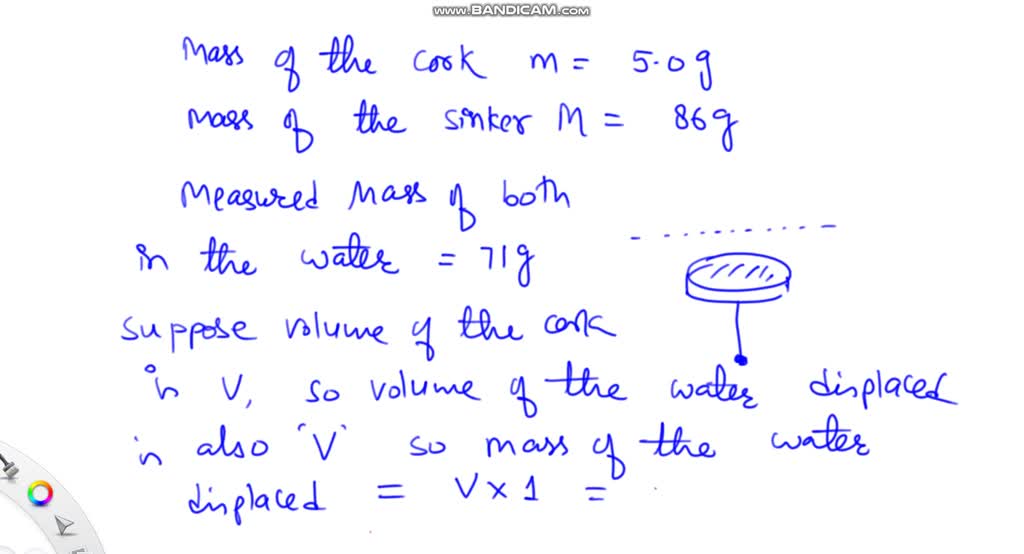 www.BANDICAM.com
Mass of the cork m = 5.0g
mass of the sinker M = 86g
Measured Mass of both
in the water = 71g
suppose volume of the cork
is V, so volume of the water displaced
is also 'V' so mass of the water
displaced = V × 1 =